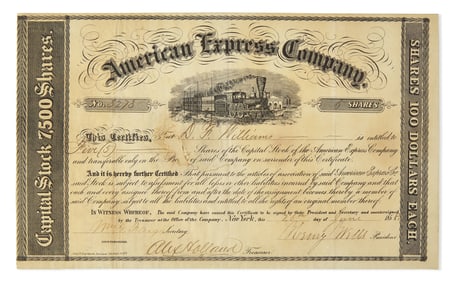 American Express Company.
No. 5273
SHARES
This Certifies, That D. N. Williams is entitled to
Five (5) Shares of the Capital Stock of the American Express Company
and transferable only on the Books of said Company on surrender of this Certificate.
And it is hereby further Certified That pursuant to the articles of association of said American Express Co.
said Stock is subject to
all losses or other liabilities incurred by said Company and that
each and every assignee thereof from and after the date of the assignment becomes thereby a member of
said Company, subject to all the liabilities and entitled to all the rights of an original member thereof.
In Witness Whereof, The said Company have caused this Certificate to be signed by their President and Secretary and countersigned
by the Treasurer at the Office of the Company, New York, this day of June
Secretary
Henry Wells President
Alex Holland Treasurer
Capital Stock 7500 Shares.
SHARES 100 DOLLARS EACH.